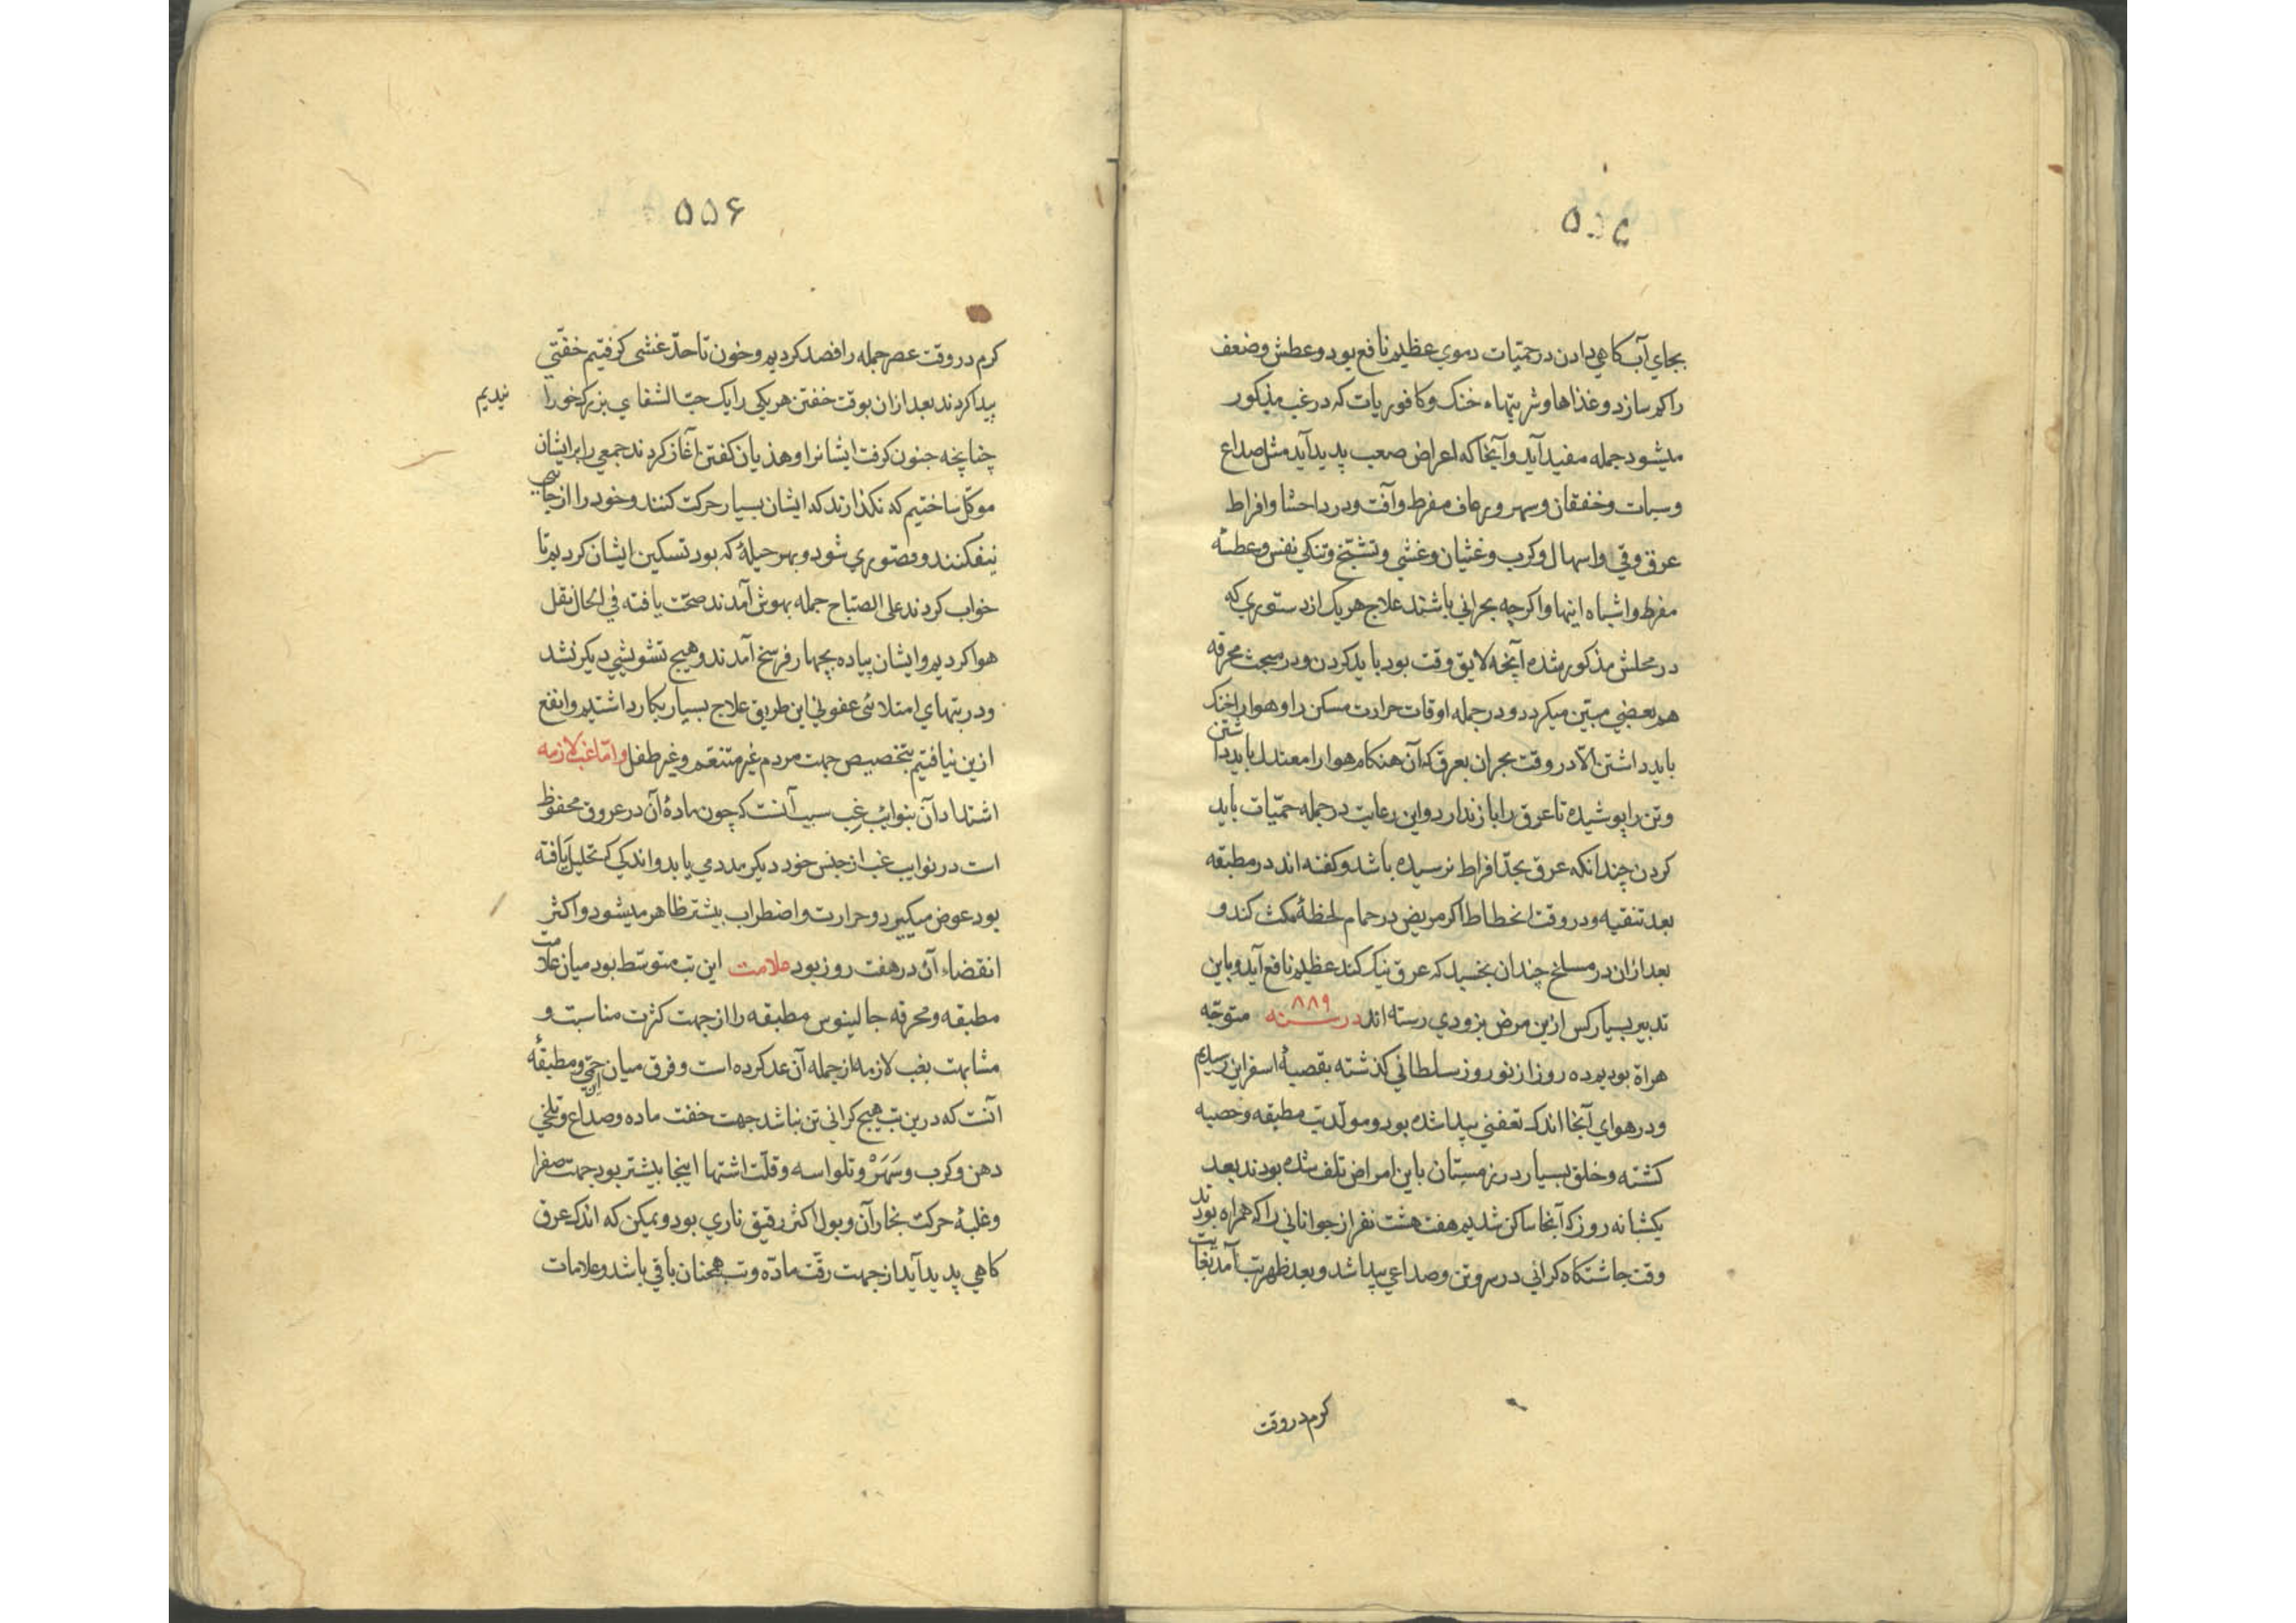 ۵۵۵
بجای آب کاهی دادن در حمّیات دموی عظیم نافع بود و عطش و ضعف
را کم سازد و غذاها و شربتهاء خنک و کافوریات که در غب مذکور
میشود جمله مفید آید و آنجا که اعراض صعب پدید آید مثل صداع
و سبات و خفقان و سهر و رعاف مفرط و آفت و درد احشا و افراط
عرق و قی و اسهال و کرب و غثیان و غشی و تشنّج و تنکی نفس و عطسهٔ
مفرط و اشباه اینها و اکرچه بحرانی باشند علاج هریک از دستوری که
در محلش مذکور شده آنچه لایق وقت بود باید کردن و در مبحث محرقه
هم بعضی مبیّن میکردد و در جمله اوقات حرارت مسکن را و هوا را خنک
باید داشتن الّا در وقت بحران بعرق که آن هنکام هوا را معتدل باید داشتن
و تن را پوشیده تا عرق را باز ندارد و این رعایت در جمله حمّیات باید
کردن چندانکه عرق بحدّ افراط نرسیده باشد و کفته اند در مطبقه
بعد تنقیه و در وقت انحطاط اکر مریض در حمام لحظهٔ مکث کند و
بعد ازان در مسلخ چندان بخسبد که عرق نیک کند عظیم نافع آید و باین
تدبیر بسیار کس ازین مرض بزودی رسته اند در سنه ۸۸۹ متوجّه
هراة بودیم ده روز از نوروز سلطانی کذشته بقصبهٔ اسفراین رسیدیم
و در هوای آنجا اندک تعفنی پیدا شده بود و مولّد تب مطبقه و حصبه
کشته و خلق بسیار در زمستان باین امراض تلف شده بودند بعد
یکشبانه روز که آنجا ساکن شدیم هفت هشت نفر از جوانانی را که همراه بودند
وقت چاشتکاه کرانی در سر و تن و صداعی پیدا شد و بعد ظهر تب آمد بغایت
کرم در وقت
۵۵۶
کرم در وقت عصر جمله را فصد کردیم و خون تا حدّ غشی کرفتیم خفّتی
پیدا کردند بعد ازان بوقت خفتن هریکی را یک حبّ الشفای بزرک خورا
نیدیم
چنانچه جنون کرفت ایشانرا و هذیان کفتن آغاز کردند جمعی را بر ایشان
موکّل ساختیم که نکذارند که ایشان بسیار حرکت کنند و خود را از جایی
بیفکنند و قصوری شود و بهر حیلهٔ که بود تسکین ایشان کردیم تا
خواب کردند علی الصباح جمله بهوش آمدند صحّت یافته فی الحال نقل
هوا کردیم و ایشان پیاده بچهار فرسخ آمدند و هیچ تشویشی دیکر نشد
و در تبهای امتلائی عفونی این طریق علاج بسیار بکار داشتیم و انفع
ازین نیافتیم بتخصیص جهت مردم غیر متنعّم و غیر طفل و امّا غب لازمه
اشتداد آن بنوایب غب سبب آنست که چون مادهٔ آن در عروق محفوظ
است در نوایب غب از جنس خود دیکر مدد می یابد و اندکی که تحلیل یافته
بود عوض میکیرد و حرارت و اضطراب بیشتر ظاهر میشود و اکثر
انقضاء آن در هفت روز بود علامت این تب متوسّط بود میان علامت
مطبقه و محرقه جالینوس مطبقه را از جهت کثرت مناسبت و
مشابهت بغب لازمه از جمله آن عد کرده است و فرق میان حمّی و مطبقهٔ
آنست که درین تب هیچ کرانی تن نباشد جهت خفت ماده و صداع و تلخی
دهن و کرب و سَهَرْ و تلواسه و قلّت اشتها اینجا بیشتر بود جهت صفرا
و غلبهٔ حرکت بخار آن و بول اکثر رقیق ناری بود و یمکن که اندک عرق
کاهی پدید آید از جهت رقّت مادّه و تب همچنان باقی باشد و علامات